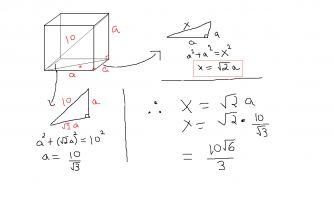 10
a
a
a
x
a
a
a² + a² = x²
x = √2 a
10
a
√2 a
a² + (√2 a)² = 10²
a = 10/√3
∴ x = √2 a
x = √2 · 10/√3
= 10√6/3